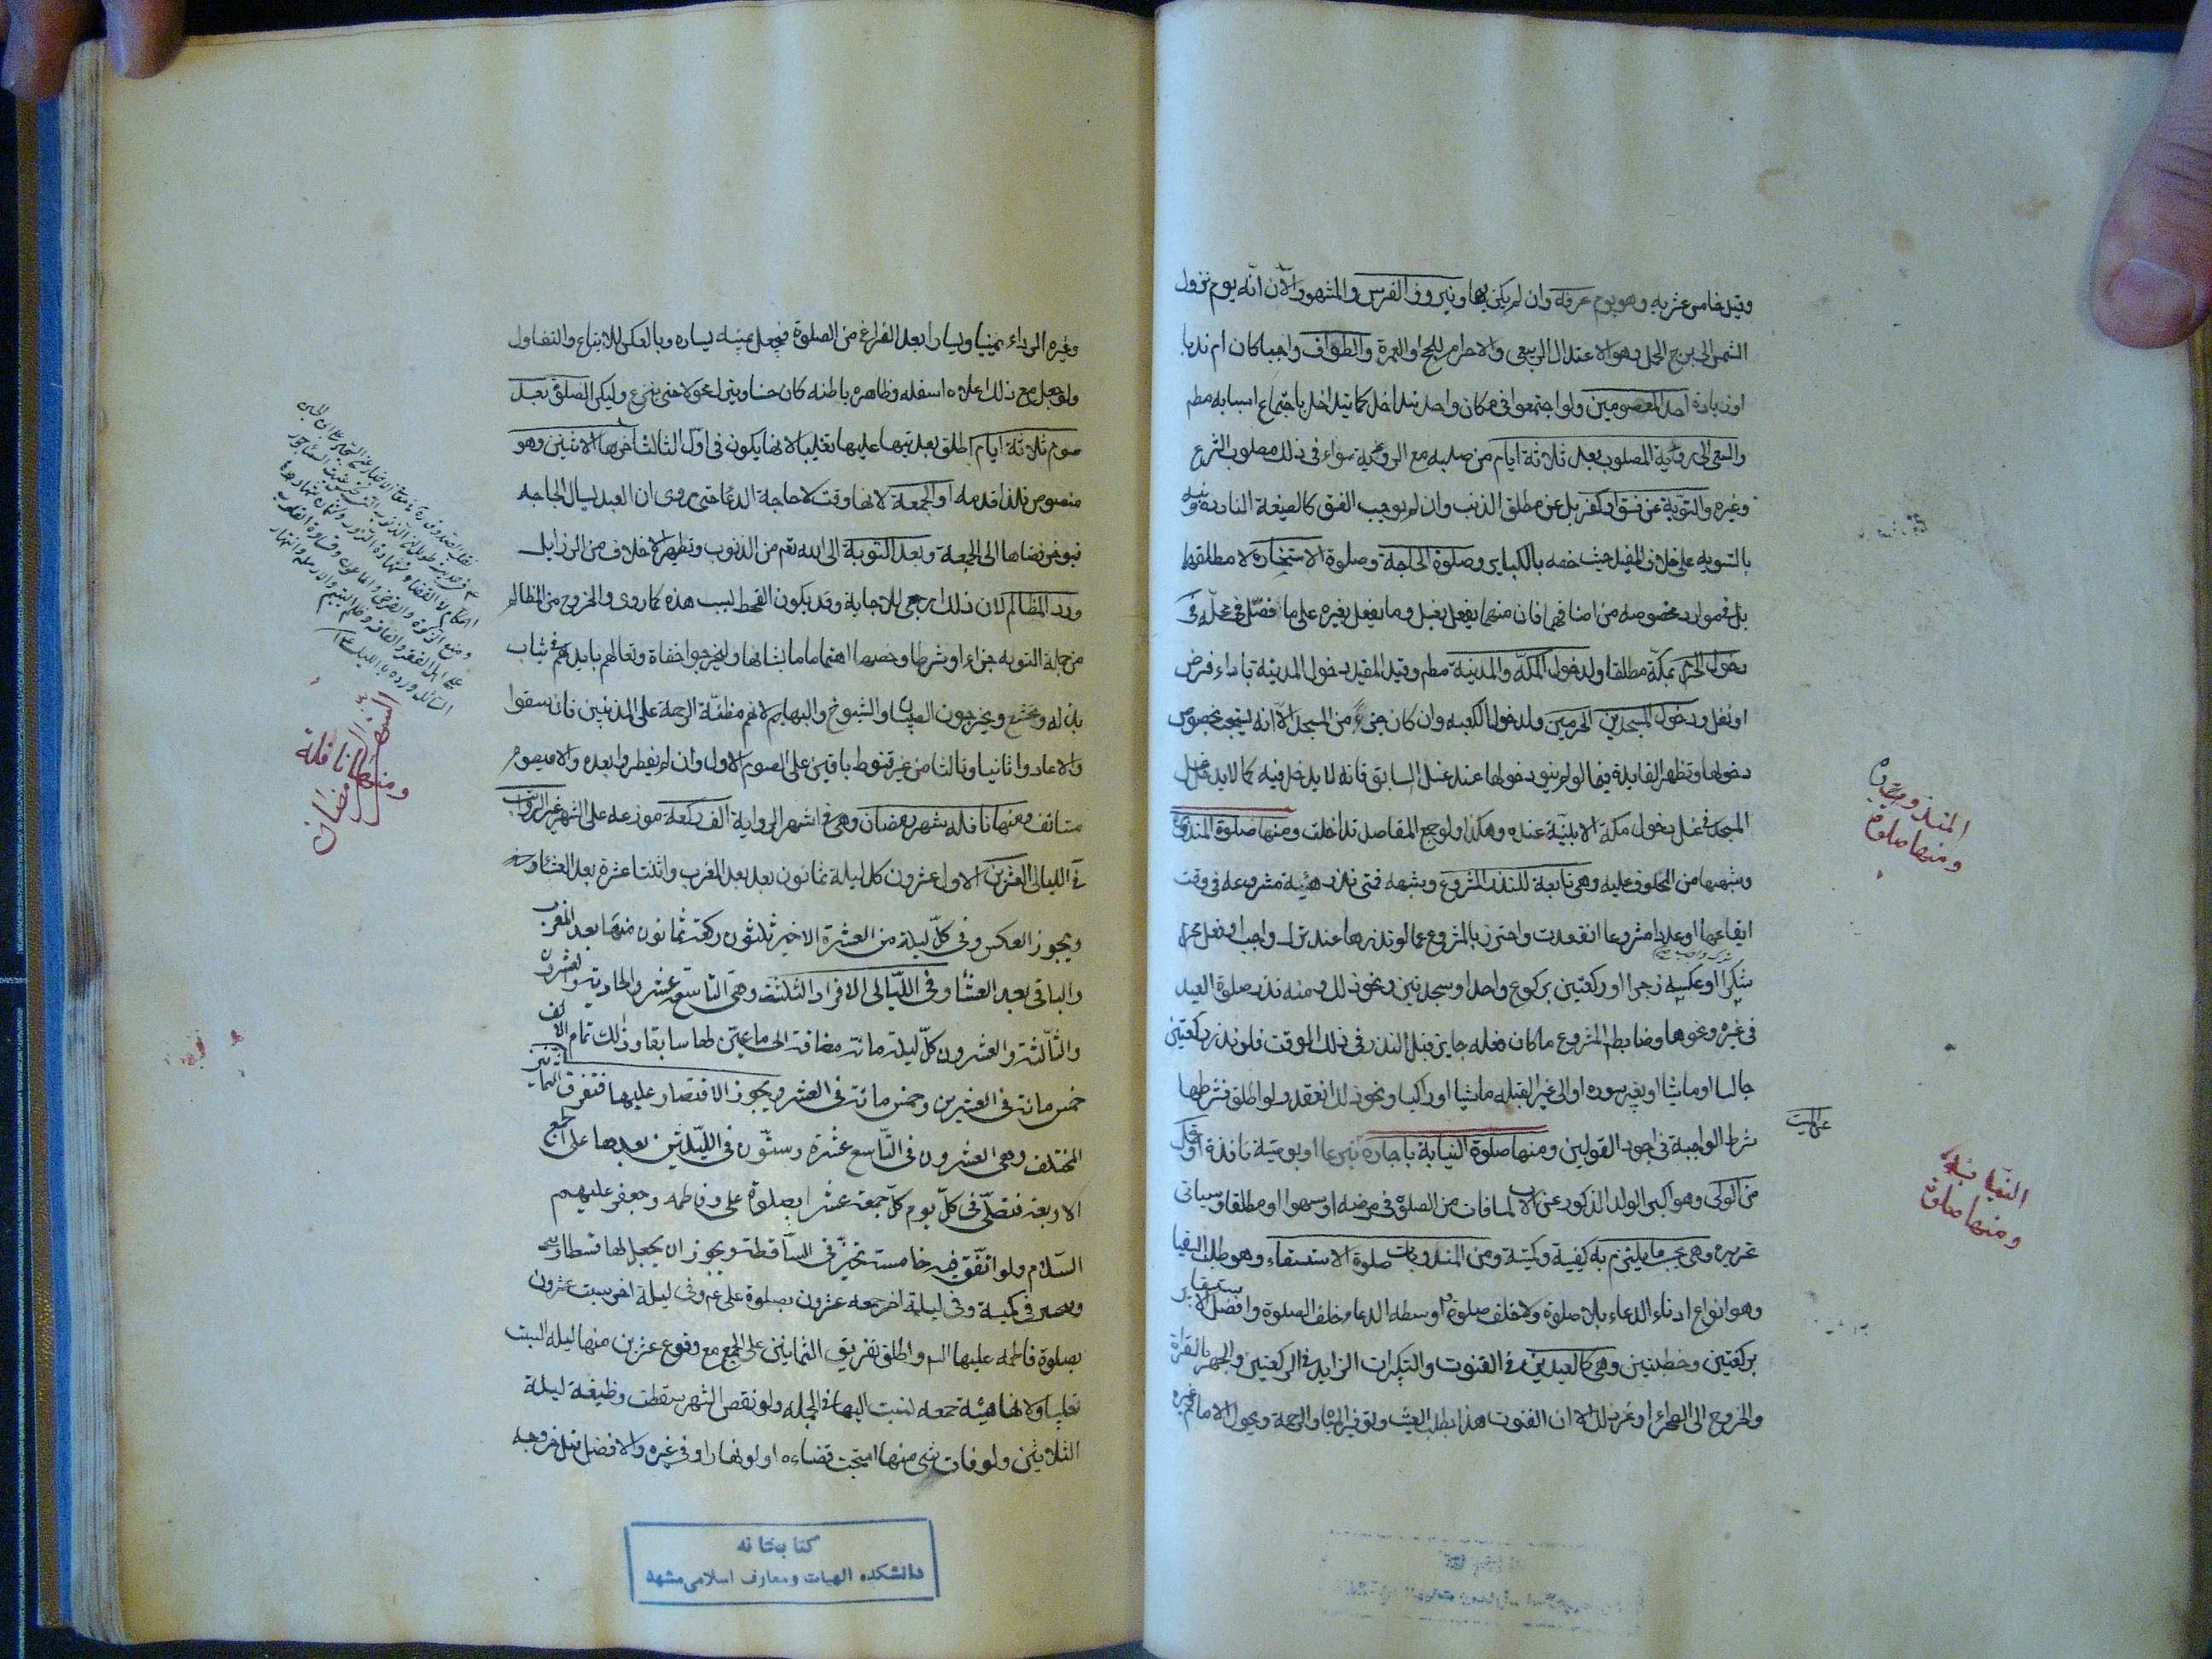 وقيل خامس عشريه وهو يوم عرفة وان لم يكن بها ونيروز الفرس والمشهور الآن انّه يوم نزول
الشمس الى برج الحمل وهو الاعتدال الربيعى والاحرام للحج او العمرة والطواف واجبا كان ام ندبا
او زيارة احد المعصومين ولو اجتمعوا فى مكان واحد تداخل كما يتداخل باجتماع اسبابه مطم
والسعى الى رؤية المصلوب بعد ثلاثة ايام من صلبه مع الرؤية سواء فى ذلك مصلوب الشرع
وغيره والتوبة عن فسق او كفر بل عن مطلق الذنب وان لم يوجب الفسق كالصغيرة النادرة ونبه
بالتسوية على خلاف المفيد حيث خصه بالكباير وصلوة الحاجة وصلوة الاستخارة لا مطلقهما
بل فى موارد مخصوصه من اصنافهما فان منهما يفعل بغسل وما يفعل بغيره على ما فصّل فى محلّه و فى
دخول الحرم بمكّة مطلقا ولدخول المكّة والمدينة مطم وقيد المفيد دخول المدينة باداء فرض
او نفل ودخول المسجدين الحرمين ولدخول الكعبه وان كان جزءً من المسجد الاّ انه يستحب بخصوص
دخولها وتظهر الفايدة فيما لو لم ينو دخولها عند غسل السابق فانه لا يدخل فيه كما لا يدخل غسل
المسجد فى غسل دخول مكة الا بنيّة عنده وهكذا ولو جمع المقاصد تداخلت ومنها صلوة المنذورة
وشبهها من المحلوف عليه وهى تابعة للنذر المشروع وشبهه فمتى نذر هيئة مشروعه فى وقت
ايقاعها او عددا مشروعا انعقدت واحترز بالمشروع عما لو نذرها عند ترك واجب او فعل محرّم
شكرا او عكسه زجرا او ركعتين بركوع واحد او سجدتين ونحو ذلك ومنه نذر صلوة العيد
فى غيره ونحوها وضابط المشروع ما كان فعله جايز قبل النذر فى ذلك الوقت فلو نذر ركعتين
جالسا او ماشيا او بغير سوره او الى غير القبله ماشيا او راكبا ونحو ذلك انعقد ولو اطلق فشرطها
شرط الواجبة فى اجود القولين ومنها صلوة النيابة باجارة تبرعا او بوصية نافذة او تحمل
من الولى وهو اكبر الولد الذكور عن الاب لما فات من الصلوة فى مرضه او سهوا او مطلقا وسياتى
تحريره وهى بحسب ما يلتزم به كيفية وكمية ومن المندوبات صلوة الاستسقاء وهو طلب السقيا
وهو انواع ادناه الدعاء بلا صلوة ولا خلف صلوة واوسطه الدعا خلف الصلوة وافضله الاستسقاء
بركعتين وخطبتين وهى كالعيدين فى القنوت والتكبيرات الزايدة فى الركعتين والجهر بالقراة
والخروج الى الصحراء وغير ذلك الا ان القنوت هذا بطلب الغيث وتوفير المياه والرحمة ويحول الامام وغيره
المنذورة
ومنها صلوة
عن الميت
النيابة
ومنها صلوة
وغيره الرداء يمينا ويسارا بعد الفراغ من الصلوة فيجعل يمينه يساره وبالعكس للاتباع والتفاول
ولو جعل مع ذلك اعلاه اسفله وظاهره باطنه كان حسنا ويترك محولا حتى ينزع وليكن الصلوة بعد
صوم ثلاثة ايام اطلق بعديتها عليها تغليبا لانها يكون فى اوّل الثالث اخرها الاثنين وهو
منصوص فلذا قدمه او الجمعة لانها وقت لاجابة الدعا حتى روى ان العبد ليسال الحاجه
فيوخر قضاها الى الجمعة وبعد التوبة الى الله تعم من الذنوب وتطهير الاخلاق من الرذايل
ورد المظالم لان ذلك ارجى للاجابة وقد يكون القحط بسبب هذه كما روى والخروج من المظالم
من جملة التوبه جزءا او شرطا وخصها اهتماما بشانها وليخرجوا حفاة ونعالهم بايديهم فى ثياب
بذلة وتخشع ويخرجون الصبيان والشيوخ والبهايم لانهم مظنّة الرحمة على المذنبين فان سقوا
والا عادوا ثانيا وثالثا من غير قنوط باقين على الصوم الاول وان لم يفطروا بعده والا فبصوم
مستانف ومنها نافله شهر رمضان وهى فى اشهر الرواية الف ركعة موزعه على الشهر غير الرواتب
فى الليالى العشرين الاول عشرون كل ليلة ثمانون بعد المغرب واثنتا عشرة بعد العشاء
ويجوز العكس وفى كلّ ليلة من العشرة الاخير ثلثون ركعة ثمانون منها بعد المغرب
والباقى بعد العشا وفى اللّيالى الافراد الثّلثة وهى التّاسع عشر والحادية والعشرون
والثّالثة والعشرون كلّ ليلة مائة مضافة الى ما عيّن لها سابقا وذلك تمام الالف
خمس مائة فى العشرين وخمس مائة فى العشر ويجوز الاقتصار عليها فتفرق الثّمانين
المختلف وهى العشرون فى التّاسع عشرة وستّون فى اللّيلتين بعدها على الجمع
الاربعة فتصلّى فى كلّ يوم كلّ جمعة عشرا بصلوة على وفاطمه وجعفر عليهم
السّلام ولو اتّفق فيه خامسة تخيّر فى السّاقطة ويجوز ان يجعل لها قسطا
وفى ليلة اخر جمعه عشرون بصلوة على عم وفى ليلة اخر سبت عشرون
بصلوة فاطمه عليها السم واطلق تفريق الثمانين على الجمع مع وقوع عشرين منها ليله السبت
تغليبا ولانها عشية جمعه تنسب اليها فى الجمله ولو نقص الشهر سقطت وظيفة ليلة
الثلاثين ولو فات شى منها استحبت قضاءه ولو نهارا وفى غيره والافضل قبل خروجه
ومنها نافلة
رمضان
كتابخانه
دانشكده الهيات ومعارف اسلامى مشهد